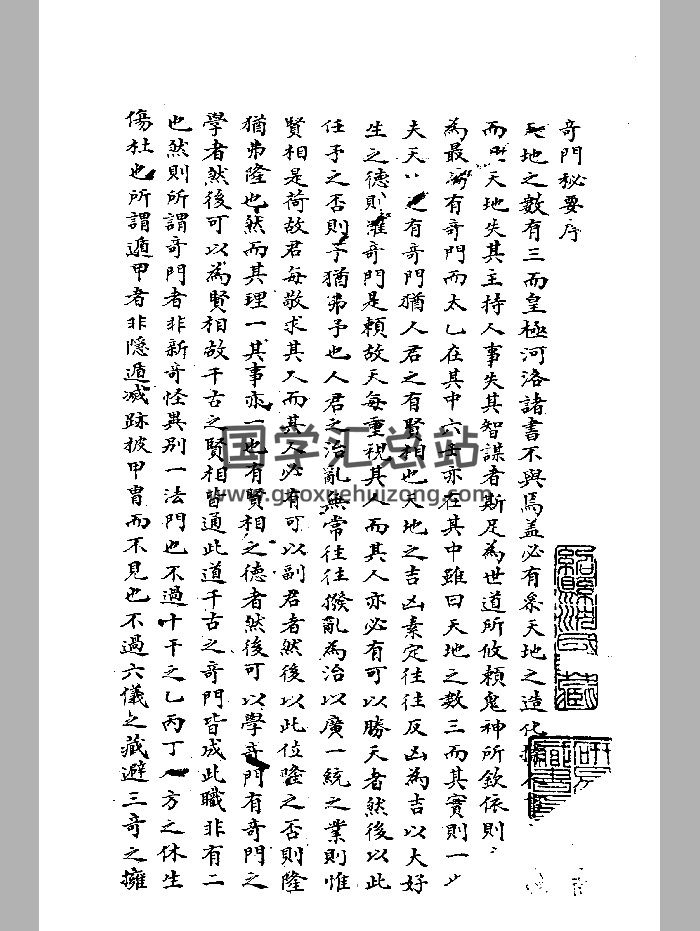 奇門秘要序
地之數有三而皇極河洛諸書不與焉盖必有奪天地之造化
而 天地失其主持人事失其智謀者斯足為世道所攸賴鬼神所欽依則
為最 有奇門而太乙在其中六壬亦在其中雖曰天地之數三而其實則一
夫天 之有奇門猶人君之有賢相也天地之吉凶素定往往反凶為吉以大好
生之德則惟奇門是賴故天每重視其人而其人亦必有可以勝天者然後以此
任予之否則予猶弗予也人君之治亂無常往往撥亂為治以廣一統之業則惟
賢相是荷故君每敬求其人而其人必有可以副君者然後以此位隆之否則隆
猶弗隆也然而其理一其事亦一也有賢相之德者然後可以學奇門有奇門之
學者然後可以為賢相故千古之賢相皆通此道千古之奇門皆成此職非有二
也然則所謂奇門者非新奇怪異別一法門也不過十干之乙丙丁八方之休生
傷杜也所謂遁甲者非隱遁滅跡披甲冑而不見也不過六儀之藏避三奇之擁
国学汇总站
www.guoxuehuizong.com